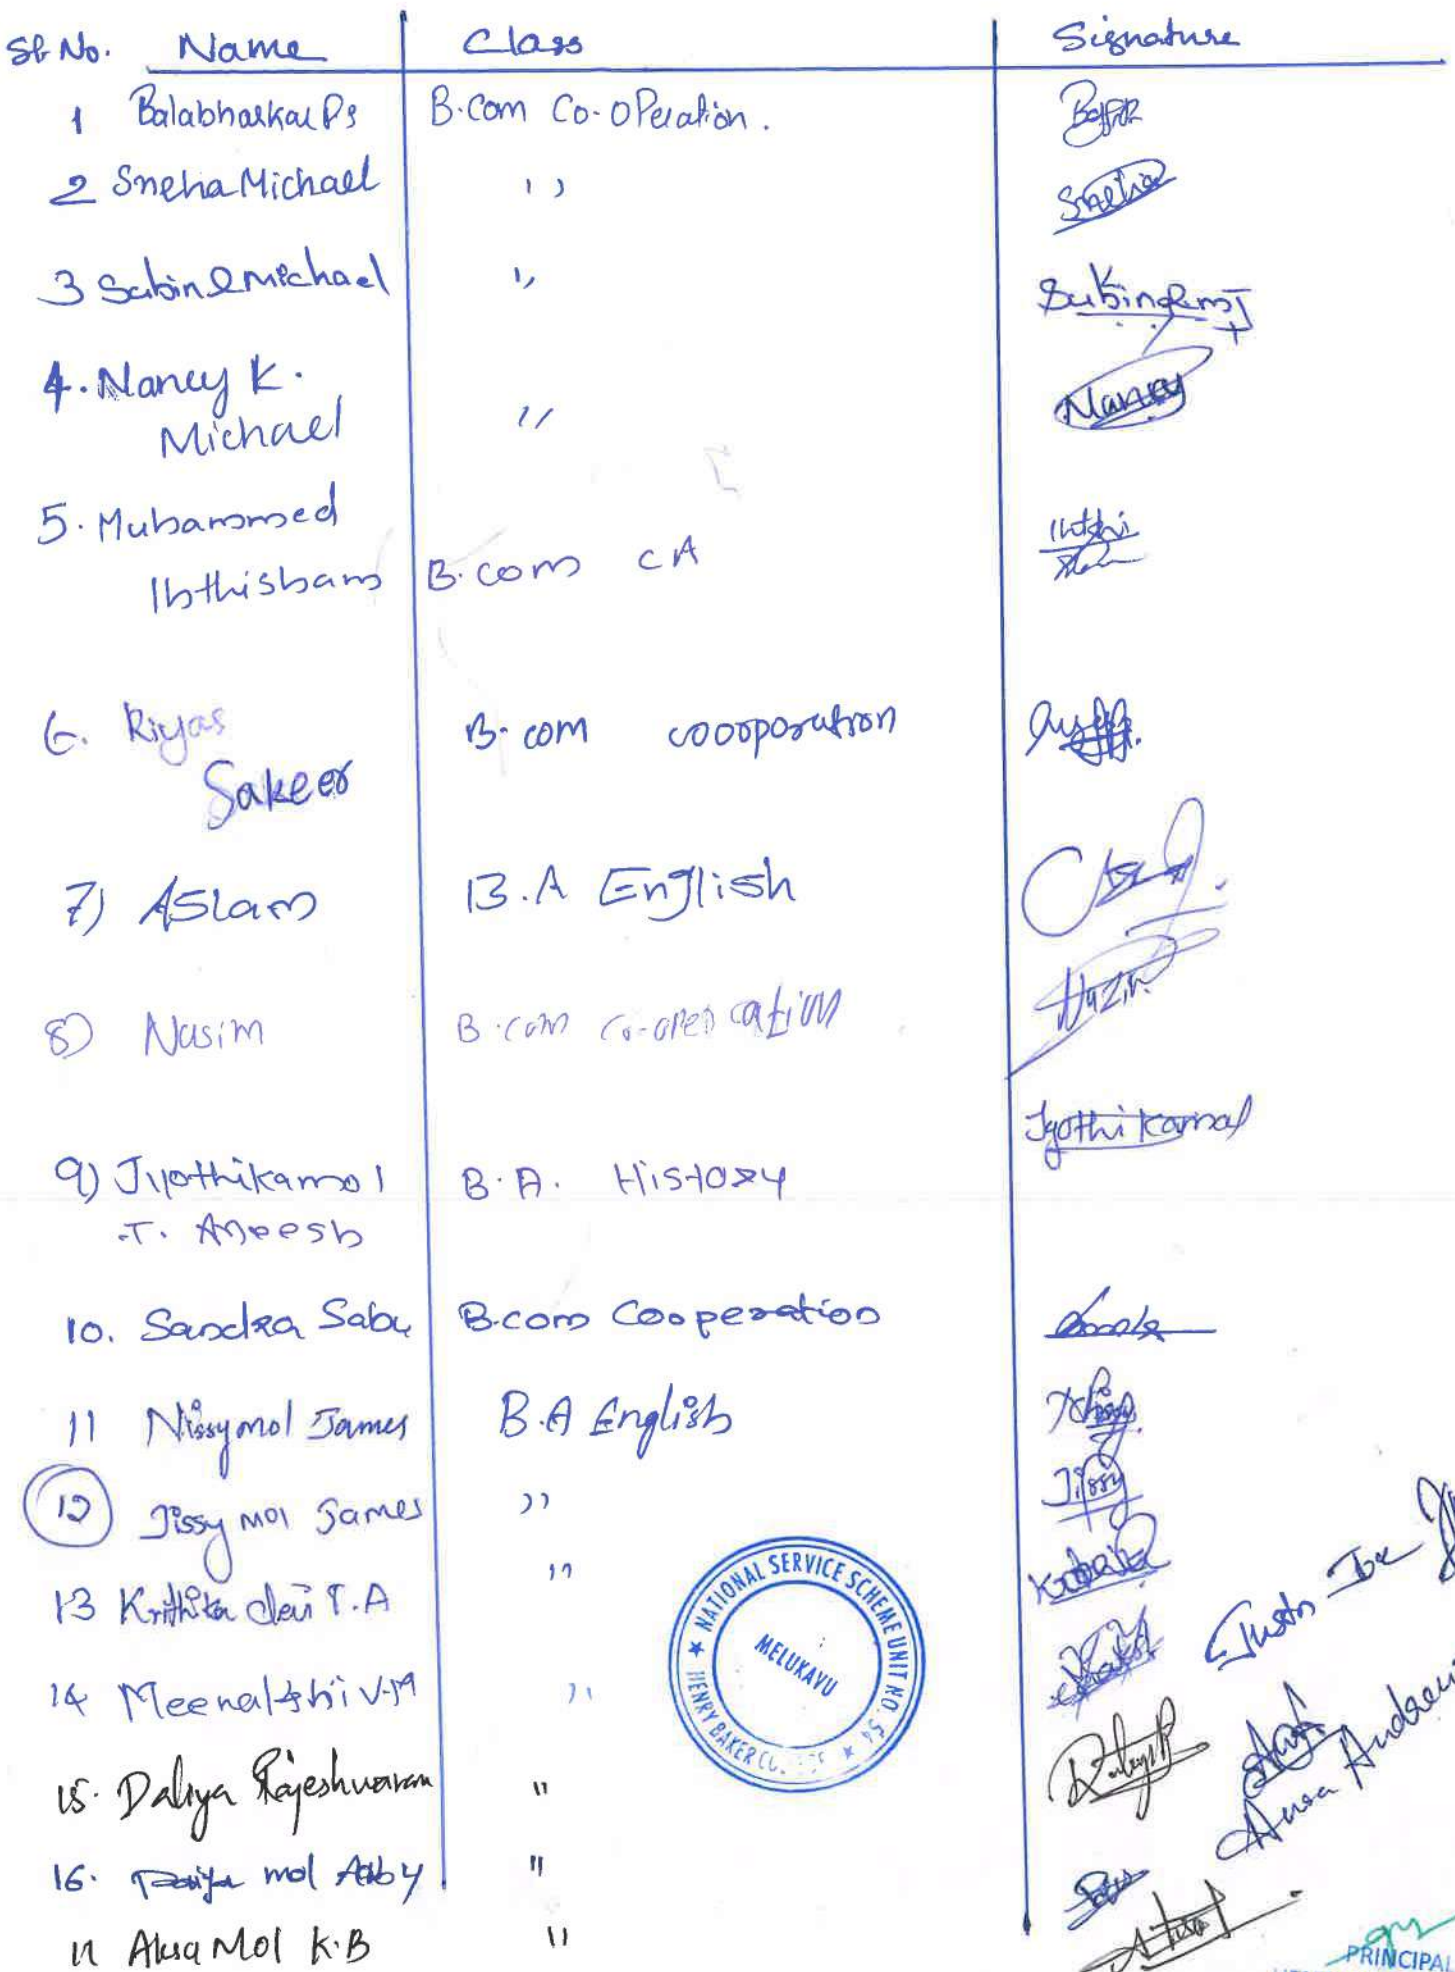 Sl No. Name Class Signature
1 Balabhaskar Ps B.com Co-Operation.
2 Sneha Michael ,, Sneha
3 Subin K Michael ,, Subin K mJ
4. Nancy K. Nancy
Michael ,,
5. Muhammed Ihthi
Ihthisham B.com CA
6. Riyas B.com cooorporation
Sakeer
7) ASlam B.A English
8) Nasim B.com co-operation Nazim
Jyothikamol
9) Jyothikamol B.A. History
T. Aneesh
10. Sandra Sabu B.com Cooperation
11 Nissymol James B.A English
12 Jissy mol James ,, Jissy
13 Krithika devi T.A ,,
14 Meenakshi V.M ,,
15. Daliya Rajeshwaran "
16. mol "
17 Aksa Mol K.B "
NATIONAL SERVICE SCHEME UNIT NO. 54
HENRY BAKER
MELUKAVU
PRINCIPAL